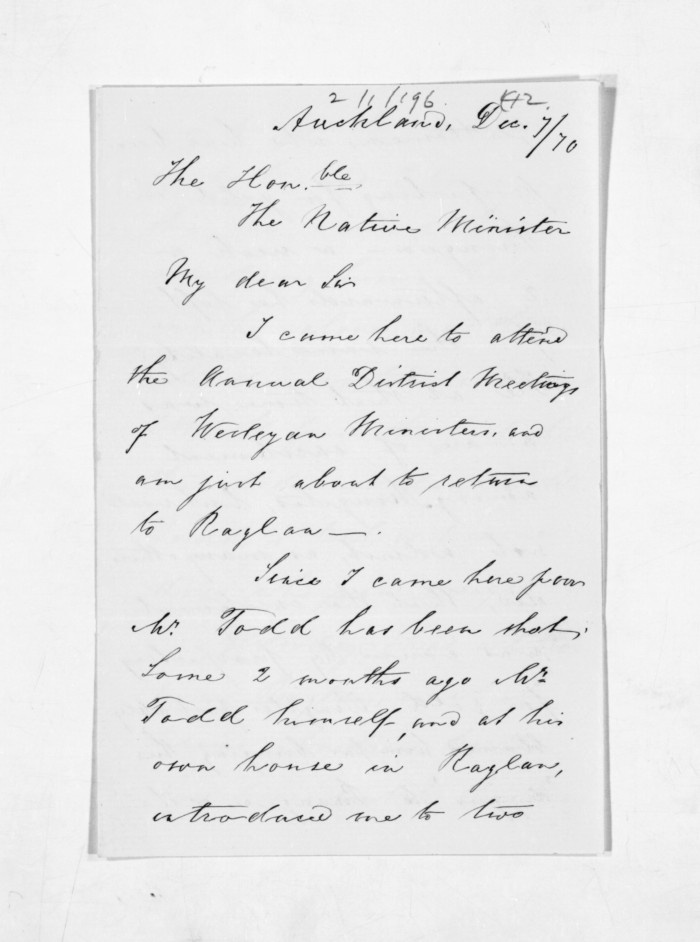 2 11/196 42.
Auckland, Dec. 7/70
The Hon.ble
The Native Minister
My dear Sir
I came here to attend
the Annual District Meetings
of Wesleyan Ministers, and
am just about to return
to Raglan —.
Since I came here poor
Mr. Todd has been shot.
Some 2 months ago Mr.
Todd himself, and at his
own house in Raglan,
introduced me to two